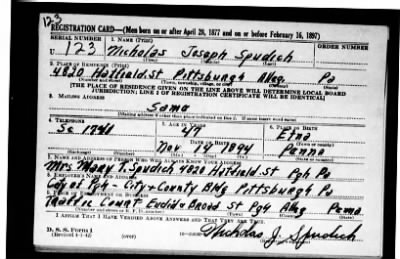 123
REGISTRATION CARD—(Men born on or after April 28, 1877 and on or before February 16, 1897)
SERIAL NUMBER 1. NAME (Print) ORDER NUMBER
U 123 Nicholas Joseph Spudich
(First) (Middle) (Last)
2. PLACE OF RESIDENCE (Print)
4820 Hatfield St Pittsburgh Alleg. Pa
(Number and street) (Town, township, village, or city) (County) (State)
[THE PLACE OF RESIDENCE GIVEN ON THE LINE ABOVE WILL DETERMINE LOCAL BOARD
JURISDICTION; LINE 2 OF REGISTRATION CERTIFICATE WILL BE IDENTICAL]
3. MAILING ADDRESS
Same
(Mailing address if other than place indicated on line 2. If same insert word same)
4. TELEPHONE 5. AGE IN YEARS 6. PLACE OF BIRTH
Sc 1741 47 Etna
DATE OF BIRTH (Town or county)
Nov 14 1894 Penna
(Exchange) (Number) (Mo.) (Day) (Yr.) (State or country)
7. NAME AND ADDRESS OF PERSON WHO WILL ALWAYS KNOW YOUR ADDRESS
Mrs Mary T Spudich 4820 Hatfield St Pgh Pa
8. EMPLOYER'S NAME AND ADDRESS
City of Pgh - City & County Bldg Pittsburgh Pa
9. PLACE OF EMPLOYMENT OR BUSINESS
Traffic Court Euclid & Broad St Pgh Alleg Penna
(Number and street or R. F. D. number) (Town) (County) (State)
I AFFIRM THAT I HAVE VERIFIED ABOVE ANSWERS AND THAT THEY ARE TRUE.
D. S. S. Form 1
(Revised 4-1-42) (over) Nicholas J. Spudich